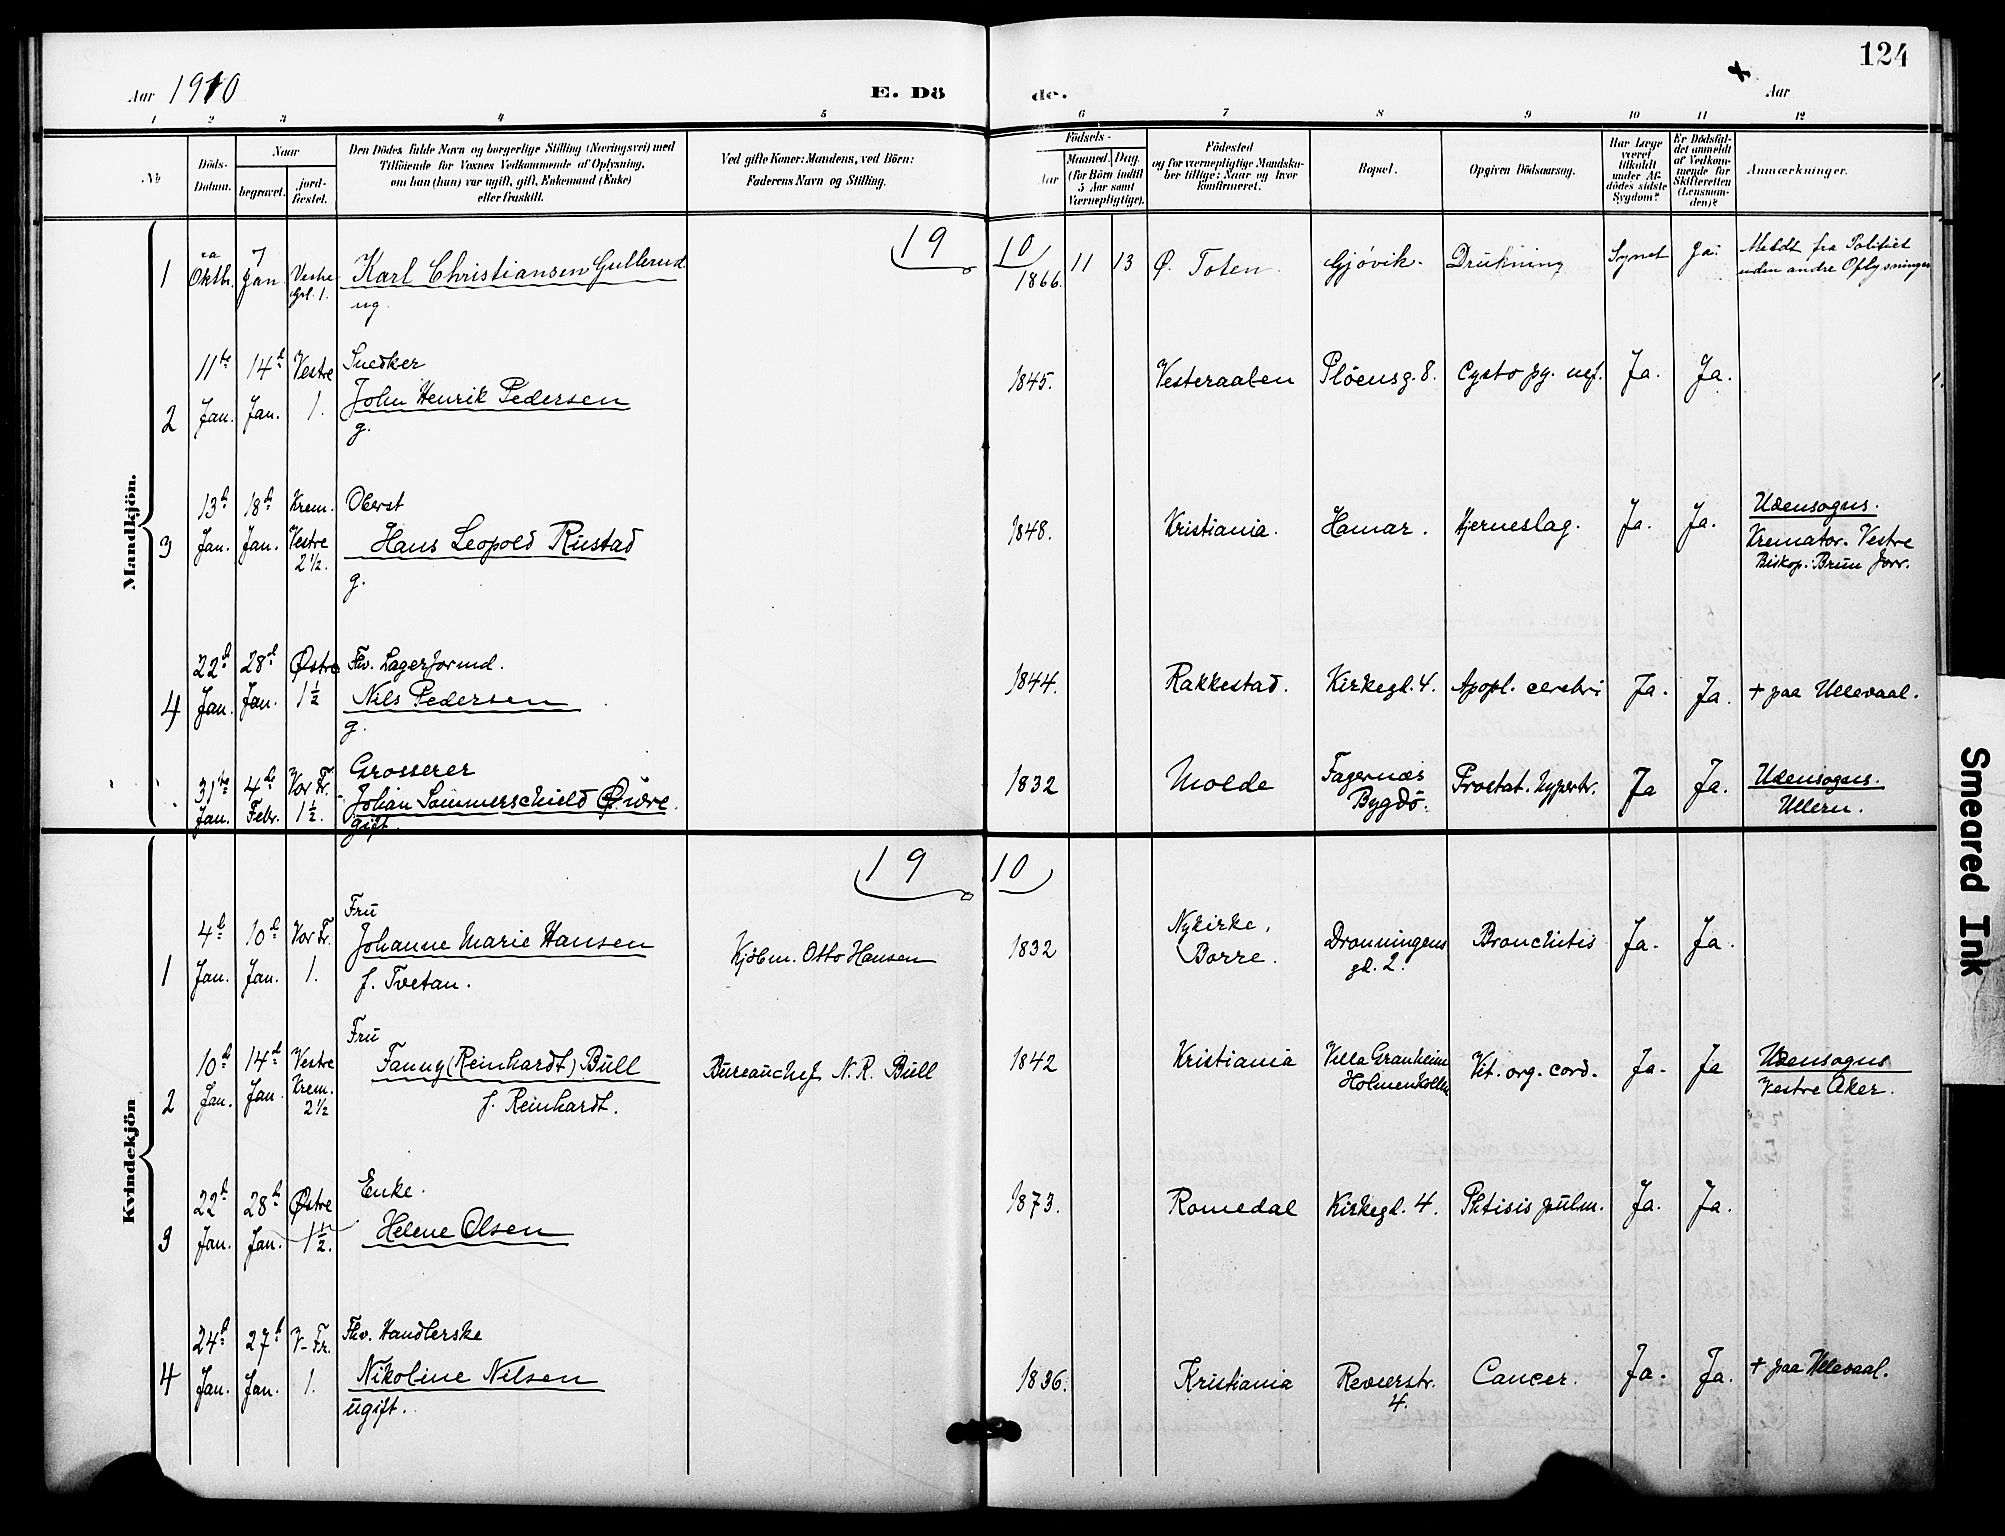 124
Aar 1910
E. Dö
de.
Aar
1 2 3 4 5 6 7 8 9 10 11 12
No
Döds-
Datum.
Naar
begravet.
jord-
fæstet.
Den Dödes fulde Navn og borgerlige Stilling (Næringsvei) med
Tilföiende for Voxnes Vedkommende af Oplysning,
om hun (han) var ugift, gift, Enkemand (Enke)
eller fraskilt.
Ved gifte Koner: Mandens, ved Börn:
Faderens Navn og Stilling.
Födsels-
Aar
Maaned. Dag.
(for Börn indtil
5 Aar samt
Værnepligtige).
Födested
og for værnepligtige Mandska-
ber tillige: Naar og hvor
konfirmeret.
Bopæl.
Opgiven Dödsaarsag.
Har Læge
været
tilkaldt
under Af-
dödes sidste
Sygdom?
Er Dödsfal-
det anmeldt
af Vedkom-
mende for
Skifteretten
(Lensman-
den)?
Anmærkninger.
Mandkjön.
19 10
1
Oktbr.
7
Jan
Vestre
Grl. 1.
Karl Christiansen Gullerud
ug.
1866. 11 13
Ø. Toten
Gjóvik.
Drukning
Synet
Ja.
Meldt fra Politiet
uden andre Oplysninger
2
11te
Jan.
14d
Jan.
Vestre
1.
Snedker
John Henrik Pedersen
g.
1845.
Vesteraalen
Plöensg. 8.
Cysto py. nef.
Ja.
Ja.
3
13d
Jan.
18d
Jan.
Krem.
Vestre
2½.
Oberst
Hans Leopold Rustad
g.
1848.
Kristiania.
Hamar.
Hjerneslag.
Ja.
Ja.
Udensogns.
Kremator. Vestre
Biskop. Brun Forr.
4
22d
Jan.
28d
Jan.
Østre
1½
Fhv. Lagerformd.
Nils Pedersen
g.
1844.
Rakkestad.
Kirkegd. 4.
Apopl. cerebri
Ja.
Ja.
+ paa Ullevaal.
31te
Jan.
4de
Febr.
Vor Fr.
1½.
Grosserer
Johan Sommerschield Øwre.
gift.
1832
Molde
Fagernæs
Bygdö.
Prostat. hypertr.
Ja
Ja.
Udensogns.
Ullern.
Kvindekjön
19 10
1
4d
Jan.
10d
Jan.
Vor Fr.
1.
Fru
Johanne Marie Hansen
f. Tvetan.
Kjöbm. Otto Hansen
1832
Nykirke,
Borre.
Dronningens
gd. 2.
Bronchitis
Ja.
Ja.
2
10d
Jan.
14d
Jan.
Vestre
Krem.
2½
Fru
Fanny (Reinhardt) Bull
f. Reinhardt.
Bureauchef N. R. Bull
1842
Kristiania
Villa Granheim
Holmenkollen
Vit. org. cord.
Ja.
Ja
Udensogns
Vestre Aker.
3
22d
Jan.
28d
Jan.
Østre
1½.
Enke.
Helene Olsen
1873.
Romedal
Kirkegd. 4.
Phtisis pulm.
Ja.
Ja.
4
24d
Jan.
27d
Jan.
V- Fr.
1.
Fhv. Handlerske
Nikoline Nilsen
ugift.
1836.
Kristiania
Revierstr.
4.
Cancer.
Ja.
Ja.
+ paa Ullevaal.
Smeared Ink